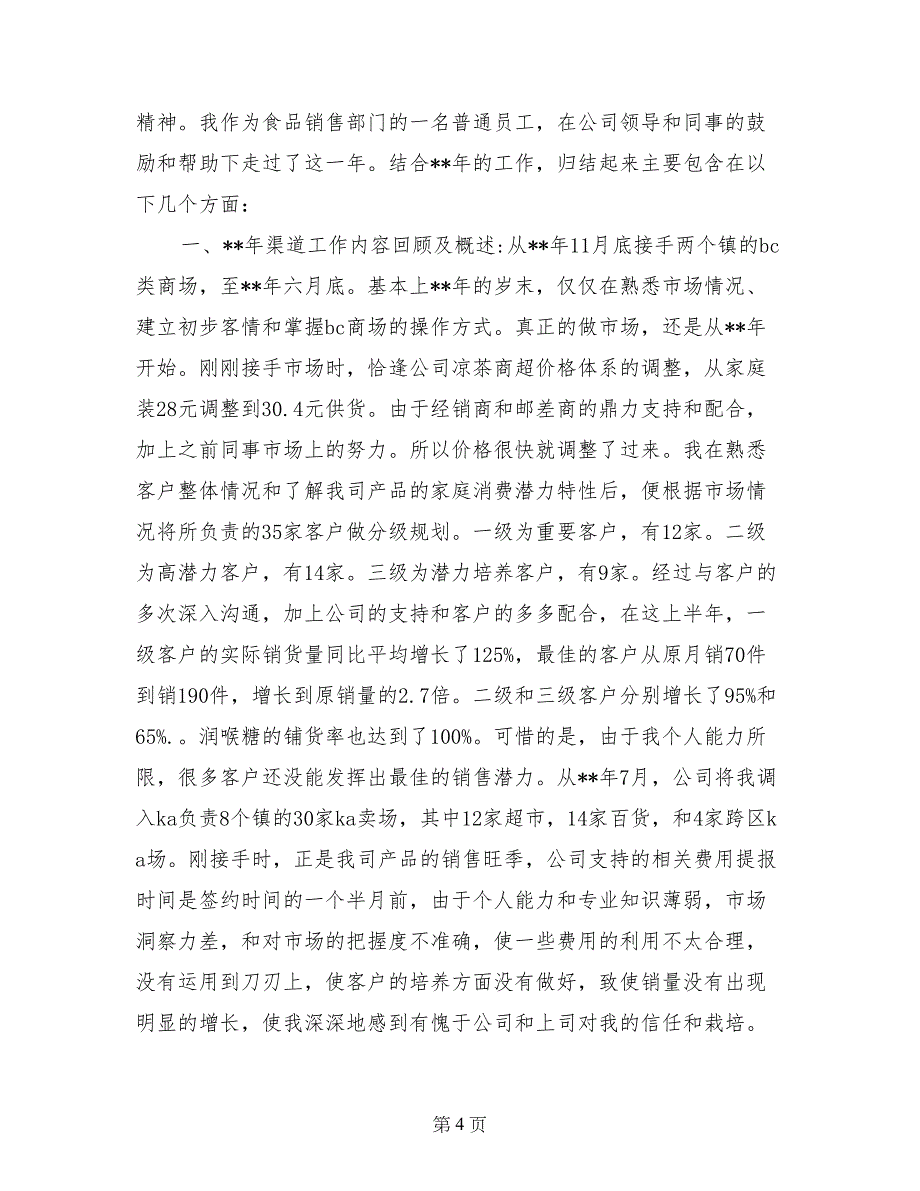 精神。我作为食品销售部门的一名普通员工，在公司领导和同事的鼓
励和帮助下走过了这一年。结合**年的工作，归结起来主要包含在以
下几个方面：
一、**年渠道工作内容回顾及概述:从**年11月底接手两个镇的bc
类商场，至**年六月底。基本上**年的岁末，仅仅在熟悉市场情况、
建立初步客情和掌握bc商场的操作方式。真正的做市场，还是从**年
开始。刚刚接手市场时，恰逢公司凉茶商超价格体系的调整，从家庭
装28元调整到30.4元供货。由于经销商和邮差商的鼎力支持和配合，
加上之前同事市场上的努力。所以价格很快就调整了过来。我在熟悉
客户整体情况和了解我司产品的家庭消费潜力特性后，便根据市场情
况将所负责的35家客户做分级规划。一级为重要客户，有12家。二级
为高潜力客户，有14家。三级为潜力培养客户，有9家。经过与客户的
多次深入沟通，加上公司的支持和客户的多多配合，在这上半年，一
级客户的实际销货量同比平均增长了125%，最佳的客户从原月销70件
到销190件，增长到原销量的2.7倍。二级和三级客户分别增长了95%和
65%.。润喉糖的铺货率也达到了100%。可惜的是，由于我个人能力所
限，很多客户还没能发挥出最佳的销售潜力。从**年7月，公司将我调
入ka负责8个镇的30家ka卖场，其中12家超市，14家百货，和4家跨区k
a场。刚接手时，正是我司产品的销售旺季，公司支持的相关费用提报
时间是签约时间的一个半月前，由于个人能力和专业知识薄弱，市场
洞察力差，和对市场的把握度不准确，使一些费用的利用不太合理，
没有运用到刀刃上，使客户的培养方面没有做好，致使销量没有出现
明显的增长，使我深深地感到有愧于公司和上司对我的信任和栽培。
第 4 页